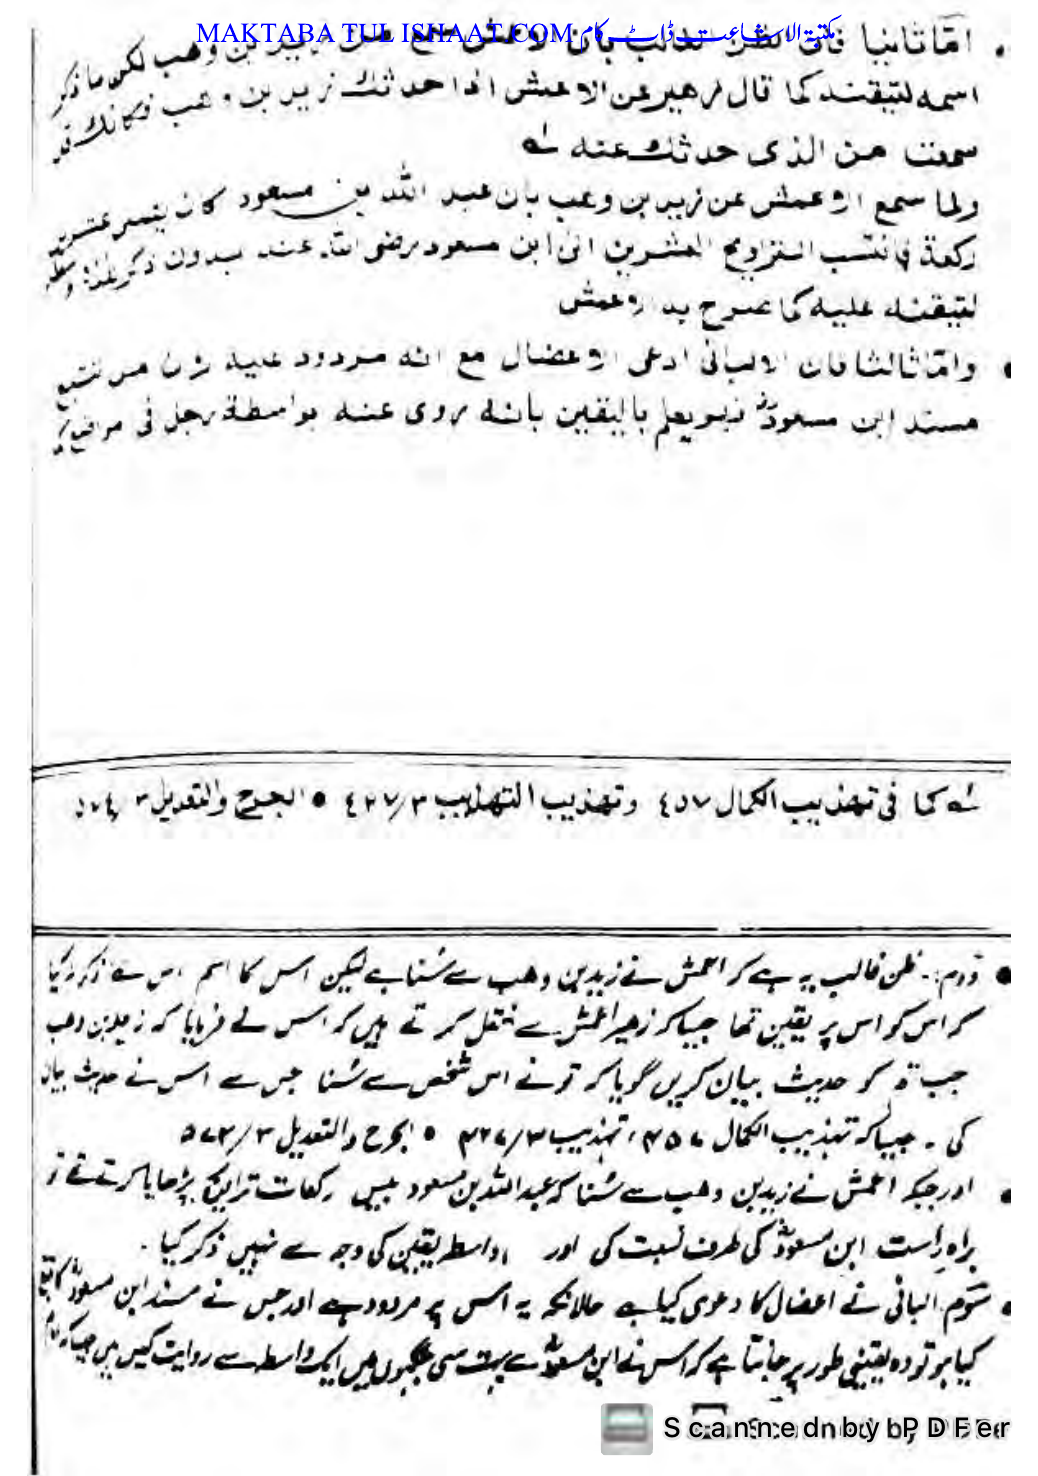 MAKTABA TUL ISHAAT.COM مکتبۃ الاشاعت ڈاٹ کام
اما ثانيا فان الظن الغالب بان الاعمش سمع من زيد بن وهب لكن ما ذكر
اسمه لتيقنه كما قال زهير عن الاعمش اذا حدثك زيد بن وهب فكانك قد
سمعت من الذى حدثك عنه له
ولما سمع الاعمش عن زيد بن وهب بان عبد الله بن مسعود كان يصلى عشرين
ركعة فانتسب التراويح العشرين الى ابن مسعود رضى الله عنه بدون ذكر
لتيقنه عليه كما صرح به الاعمش
واما ثالثا فان الالبانى ادعى الاعضال مع انه مردود عليه لان من تتبع
مسند ابن مسعودؓ فهو يعلم باليقين بانه روى عنه بواسطة رجل فى مواضع
له كما فى تهذيب الكمال ٤٥٧ وتهذيب التهذيب ٤٢٧/٣ • الجرح والتعديل
دوم:۔ ظن غالب یہ ہے کہ اعمش نے زید بن وھب سے سُنا ہے لیکن اس کا اسم اس لئے ذکر نہ کیا
کہ اس کو اس پر یقین تھا جیسا کہ زھیر اعمش سے نقل کرتے ہیں کہ اس نے فرمایا کہ زید بن وھب
جب تم کو حدیث بیان کریں گویا کہ تو نے اس شخص سے سُنا جس سے اس نے حدیث بیان
کی ۔ جیسا کہ تہذیب الکمال ۴۵۷، تہذیب ۴۲۷/۳ • الجرح والتعدیل ۵۷۴/۳
اور جبکہ اعمش نے زید بن وھب سے سُنا کہ عبداللہ بن مسعود بیس رکعات تراویح پڑھایا کرتے تھے تو
براہِ راست ابن مسعودؓ کی طرف نسبت کی اور واسطہ یقین کی وجہ سے نہیں ذکر کیا ۔
سوم: البانی نے اعضال کا دعویٰ کیا ہے حالانکہ یہ اس پر مردود ہے اور جس نے مسند ابن مسعودؓ کا تتبع
کیا ہو تو وہ یقینی طور پر جانتا ہے کہ اس نے ابن مسعودؓ سے بہت سی جگہوں میں ایک واسطہ سے روایت کیں ہیں جیسا کہ
Scanned by PDFer